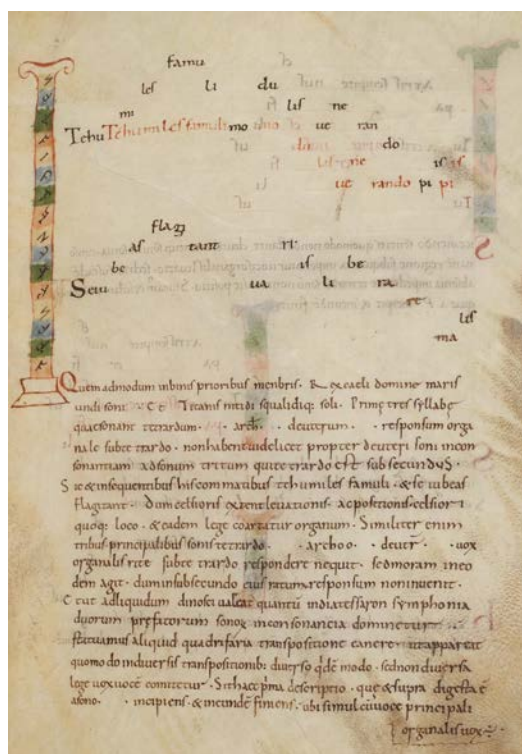 famu
les li du
mi lis ne
Tehu Tehumiles famuli mo duo ue ran
do
lis ne is is
ue rando pi pi
flag
as tant ri
be is be
Seiu ua li ra
re
lis
ma
Quem admodum in binis prioribus menbris. Rex caeli domine maris
undisoni. Et Titanis nitidi squalidiq; soli. Primę tres syllabę
qua & sonant tetrardum. arch. deuterum. responsum orga
nale subte trardo. non habent uidelicet propter deuteri soni incon
sonantiam ad sonum tritum qui te trardo est sub secundus.
Sic & in sequentibus his commatibus te humiles famuli. & se iubeas
flagitant. Dum celsioris extent leuationis. ac positionis celsiori
quoq; loco. & eadem lege coartatur organum. Similiter enim
tribus principalibus sonis tetrardo. archoo. deuter. uox
organalis rite subte trardo respondere nequit. sed moram in eo
dem agit. dum in subsecundo eius ratum responsum non inuenit.
Et ut ad liquidum dinosci ualeat quantū in diatessaron symphonia
duorum prefatorum sonoꝝ inconsonancia dominetur.
statuamus aliquid quadrifaria transpositione canere. ut appareat
quomodo in diuersis transpositionib; diuerso qdē modo. sed non diuersa
lege uox uoce comitetur. Sit haec pma descriptio. quę & supra digesta ē
a sono. incipiens. & in eundē finiens. ubi simul cū uoce principali
organalis uox